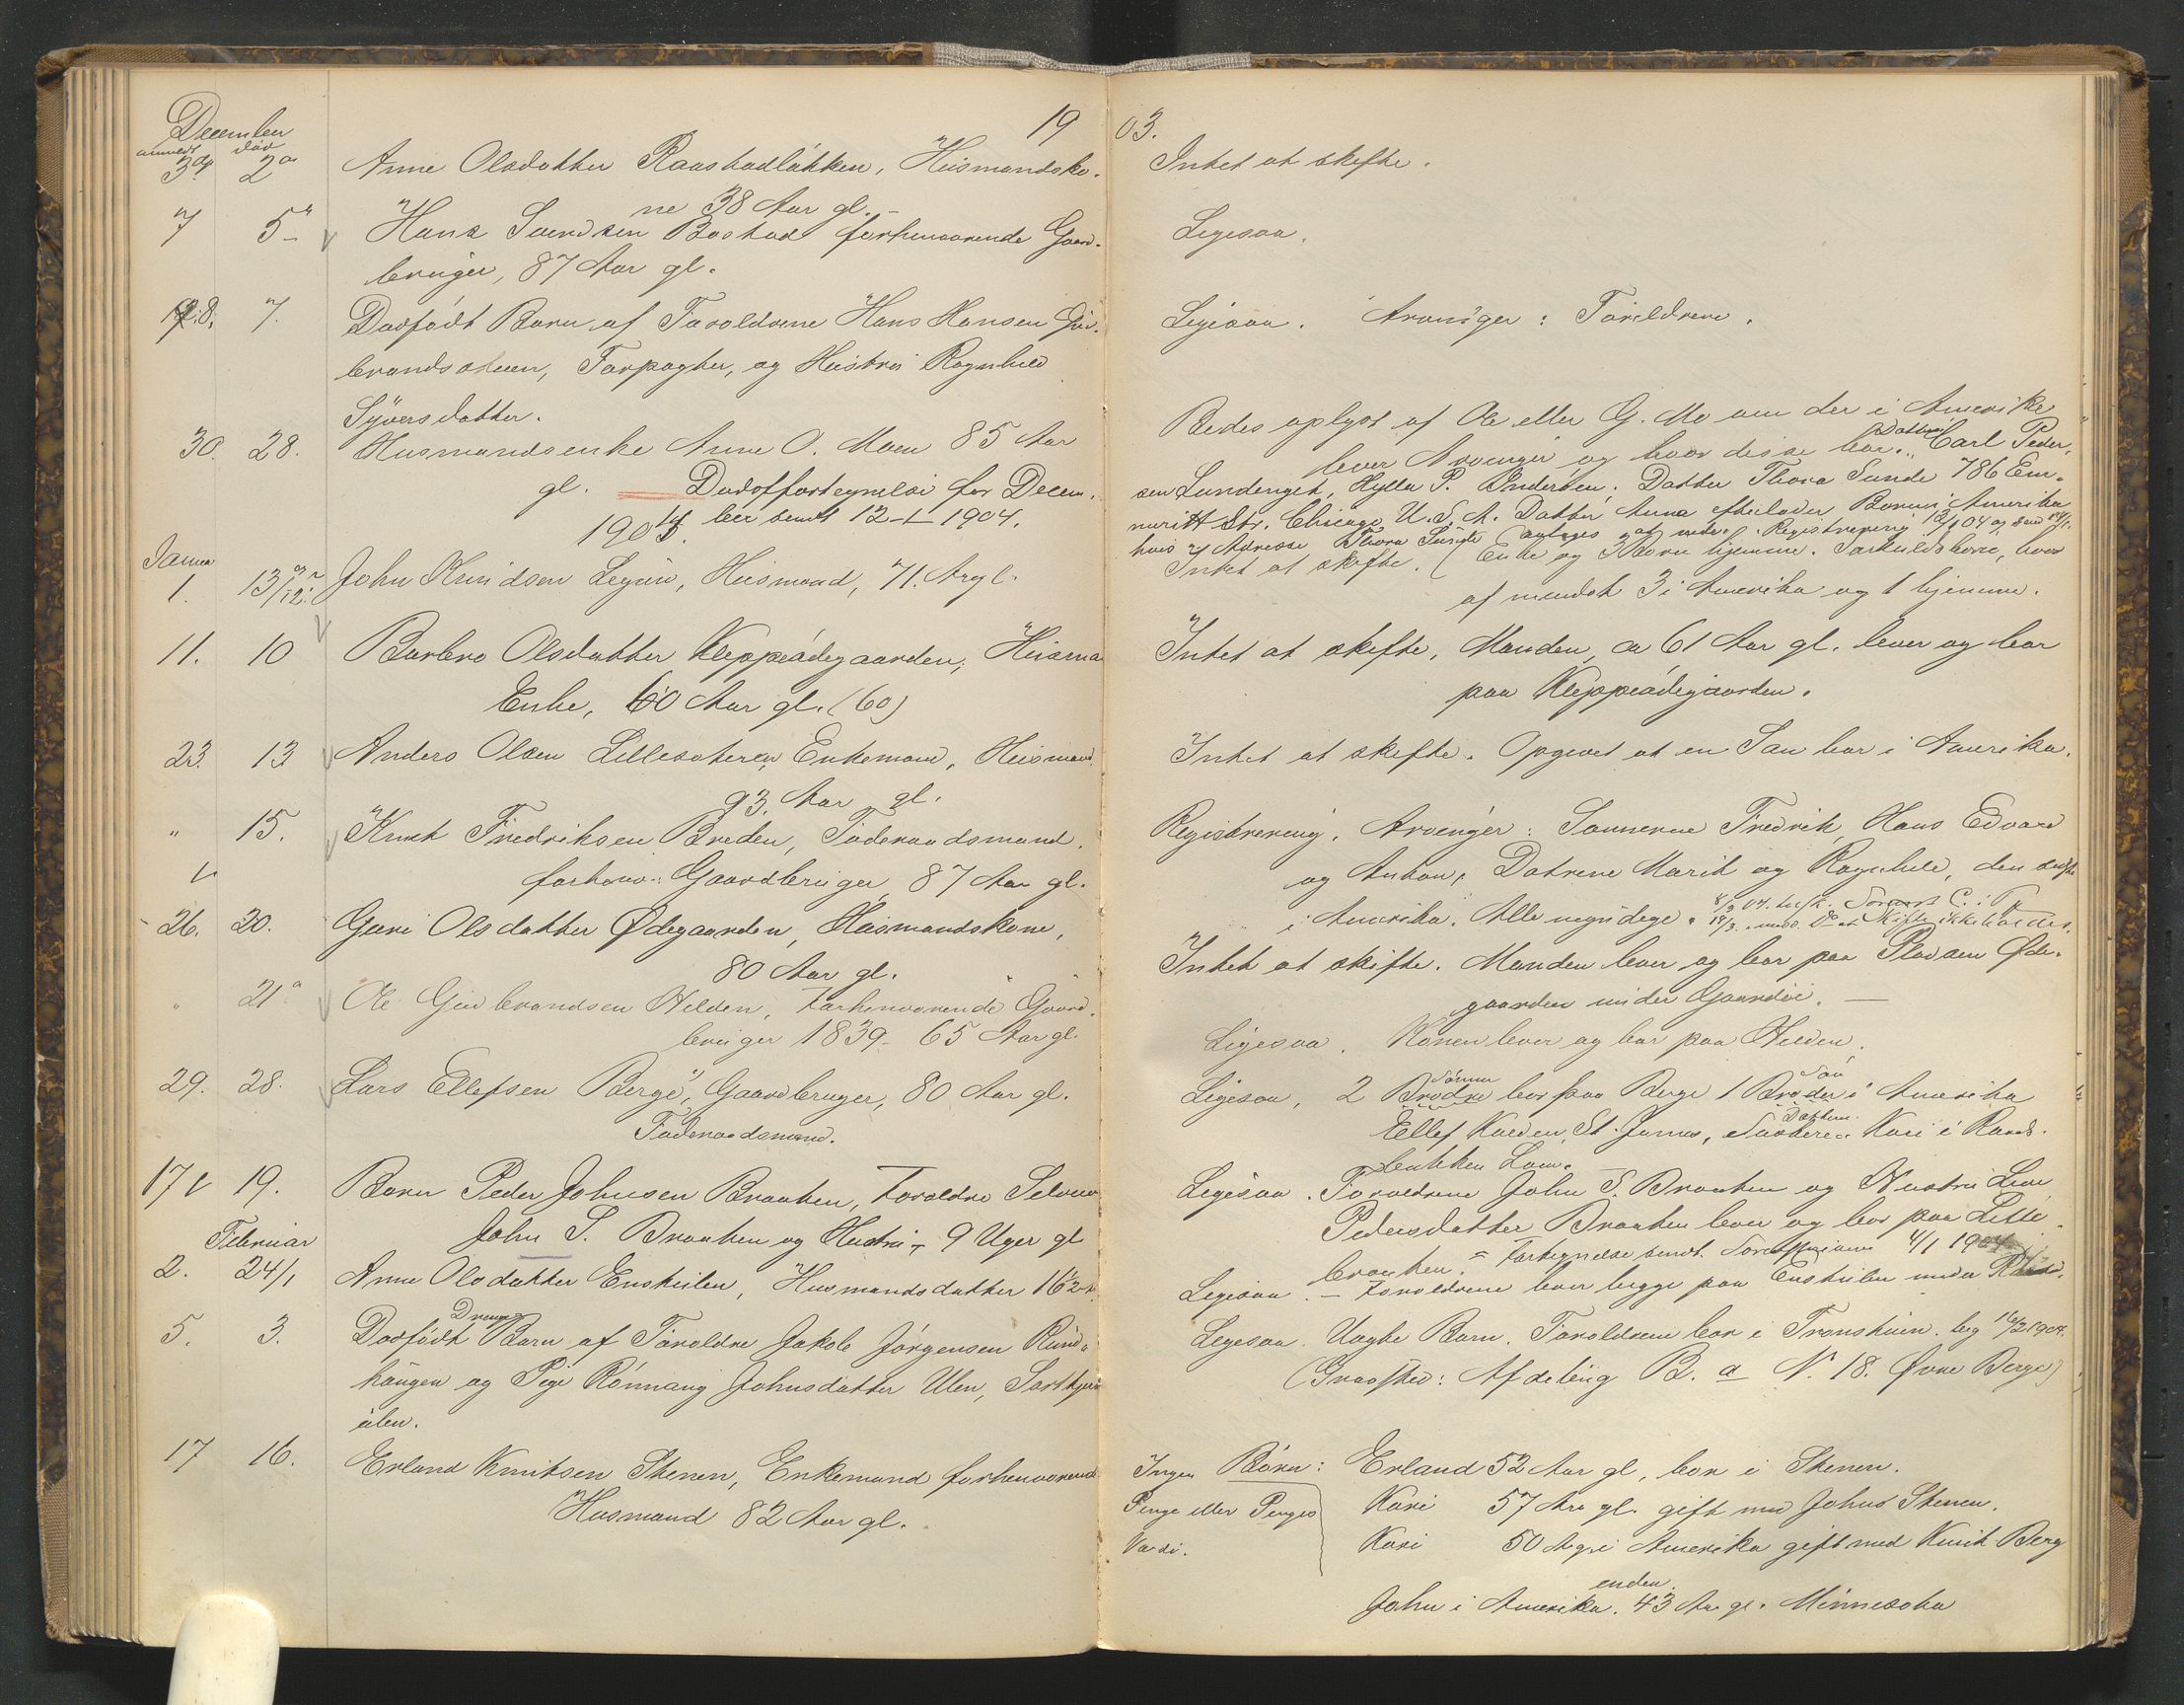 December
anmeldt død
19
3die 2den Anne Olsdatter Raastadløkken, Husmandsko-
ne 38 Aar gl.
7 5te Hans Svendsen Bostad forhenværende Gaard-
bruger, 87 Aar gl.
8. 7. Dødfødt Barn af Forældrene Hans Hansen Gud-
brandsstuen, Forpagter, og Hustru Ragnhild
Syversdatter.
30. 28. Husmandsenke Anne O. Moen 85 Aar
gl. Dødsfortegnelse for Decem-
1904. ber sendt 12-1-1904.
Januar
1. 13/12. John Knudsen, Husmand, 71. Ar gl.
11. 10 Barbro Olsdatter Kleppeødegaarden, Husma
Enke, 60 Aar gl. (60)
23. 13 Anders Olsen Lillesæteren, Enkemand, Husmand.
93. Aar gl.
" 15. Knut Fredriksen Breden, Føderaadsmand,
forhenv. Gaardbruger 87 Aar gl.
26. 20. Guri Olsdatter Ødegaarden, Husmandskone,
80 Aar gl.
" 21 Ole Gudbrandsen Hilden, forhenværende Gaard-
bruger 1839 - 65 Aar gl.
29. 28. Lars Ellefsen Berge, Gaardbruger, 80 Aar gl.
Føderaadsmand.
17 19. Barn Peder Johnsen Braaten, Forældre Selveier
John S. Braaten og Hustru - 9 Uger gl
Februar
2. 24/1 Anne Olsdatter, Husmandsdatter
5. 3. Dødfødt Drenge Barn af Forældre Jakob Jörgensen
og Pige Rönnaug Johnsdatter Ulen,
ulen.
17 16. Erland Knutsen Stenen, Enkemand forhenværende
Husmand 82 Aar gl.
03.
Intet at skifte.
Ligesaa.
Ligesaa. Arvinger: Forældrene.
Bedes oplyst af Ole eller G. Mo om der i Amerika
lever Arvinger og hvor disse bor. Datter Carl Peder-
sen Lundenget, P. Andersen. Datter Thora Sunde 786
Str. Chicago, U.S.A. Datter Anna efterlader Barn i Amerika
hvis Adresse Thora Sunde antages at vide. Registrering
Intet at skifte. (Enke og 3 Børn hjemme. Særkuldsbørn, hvor
af mindst 3 i Amerika og 1 hjemme.
Intet at skifte, Manden, ca 61 Aar gl. lever og bor
paa Kleppeødegaarden.
Intet at skifte. Opgivet at en Søn bor i Amerika.
Registrering. Arvinger: Sønnerne Fredrik, Hans Edvard
og Anton, Døtrene Marit og Ragnhild, den sidste
i Amerika. Alle myndige.
Intet at skifte. Manden lever og bor paa Pladsen Øde-
gaarden under
Ligesaa. Konen lever og bor paa Hilden.
Ligesaa, 2 Brødre Sønner bor paa Berge 1 Broder Søn i Amerika
Ellef St. James, Søsteren Datteren Kari i
Lom.
Ligesaa. Forældrene John S. Braaten og Hustru
Pedersdatter Braaten lever og bor paa Lille-
braaten. = Fortegnelse sendt 4/1 1904
Ligesaa. - Forældrene lever begge paa under
Ligesaa. Uægte Barn. Forældrene bor i beg 16/2 1904.
(Gravsted: Afdeling B. a N. 18. Øvre Berge)
Ingen Børn: Erland 52 Aar gl, bor i Stenen.
Penge eller Penges Kari 57 Aar gl. gift med Johns Stenen.
Værdi. Kari 50 A gl i Amerika gift med Knut Berg
enden.
John i Amerika. 43 Aar gl. Minnesota